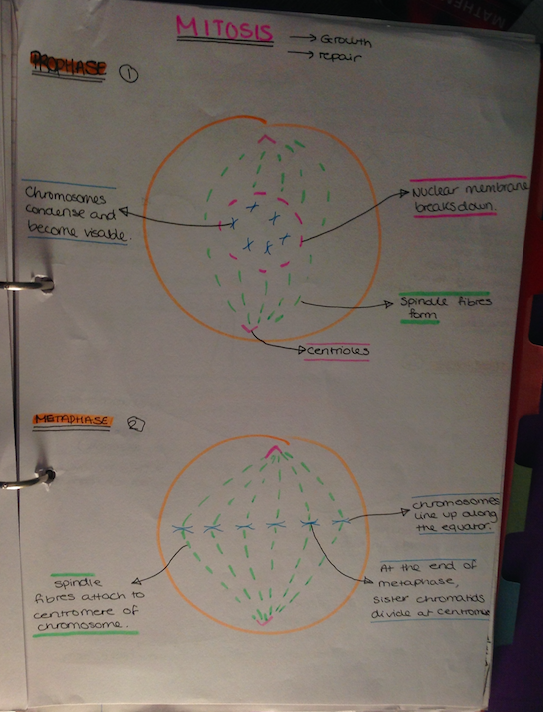 MITOSIS
→ Growth
→ repair
PROPHASE 1
Chromosomes
condense and
become visible.
Nuclear membrane
breaks down.
Spindle fibres
form
centrioles
METAPHASE 2
chromosomes
line up along
the equator.
Spindle
fibres attach to
centromere of
chromosome.
At the end of
metaphase,
sister chromatids
divide at centrome